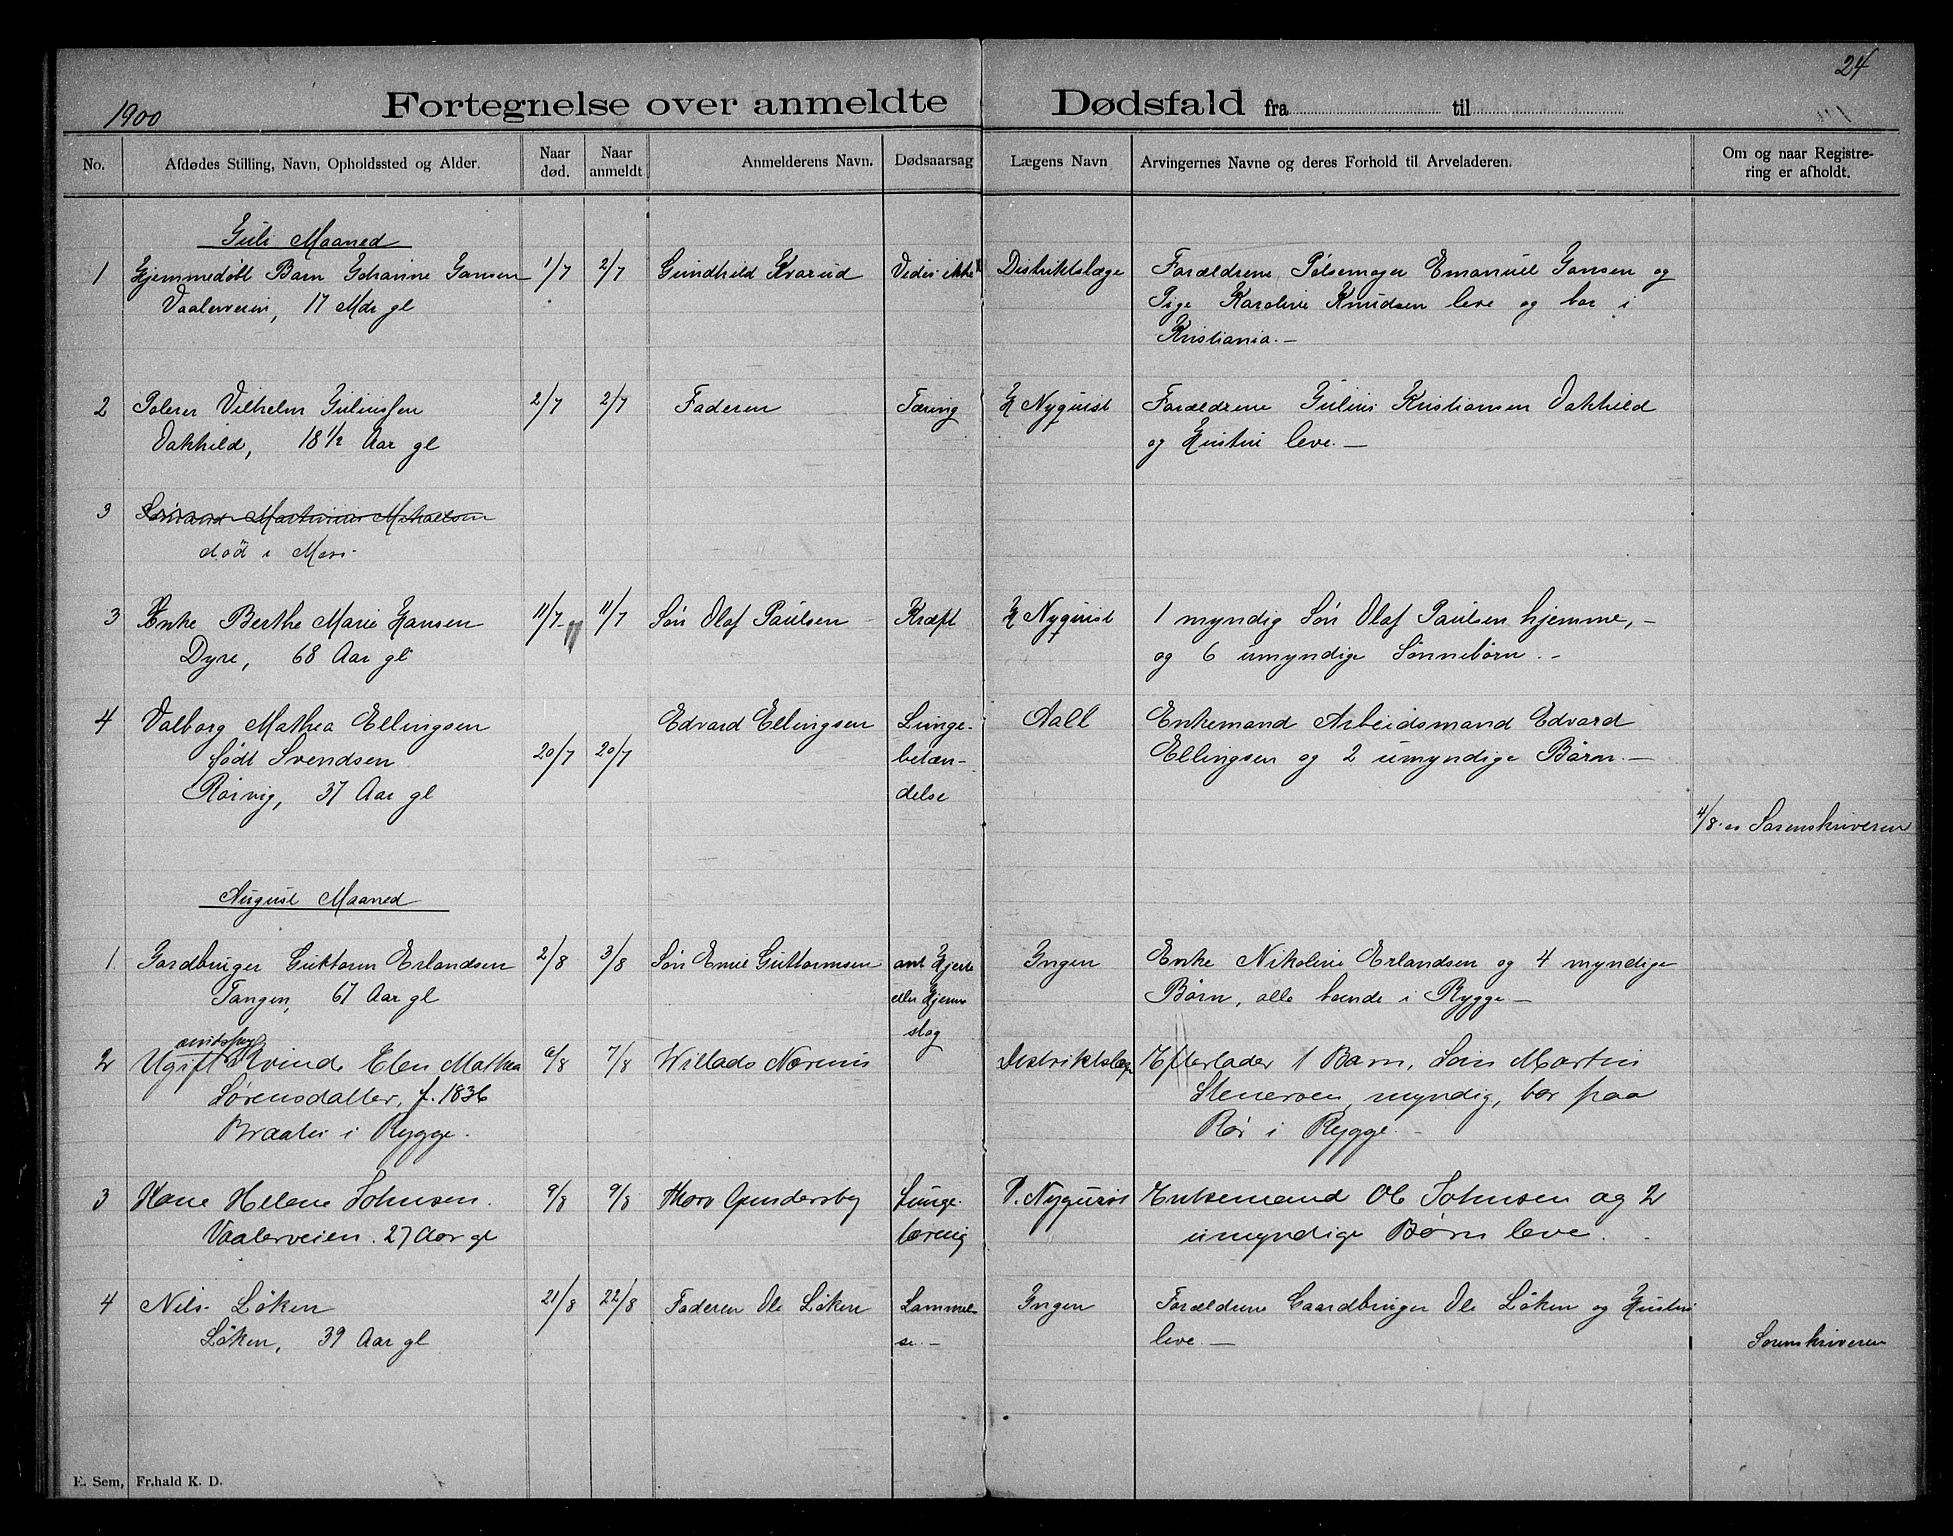 24
1900
Fortegnelse over anmeldte Dødsfald fra til
No.
Afdødes Stilling, Navn, Opholdssted og Alder.
Naar død.
Naar anmeldt
Anmelderens Navn.
Dødsaarsag
Lægens Navn
Arvingernes Navne og deres Forhold til Arveladeren.
Om og naar Registre-
ring er afholdt.
Juli Maaned
1 Hjemmedøbt Barn Johanne Jansen 1/7 2/7 Gundhild Kvarud Vides ikke Distriktslæge Forældrene Pølsemager Emanuel Jansen og
Vaalerveien, 17 Mdr gl Pige Karoline Knudsen leve og bor i
Kristiania.—
2 Vilhelm Juliussen 2/7 2/7 Faderen Tæring H Nyquist Forældrene Julius Kristiansen Vakhild
Vakhild, 18 1/2 Aar gl og Hustru leve.—
3 Martinius
død i Mai.
3 Enke Berthe Marie Hansen 11/7 11/7 Søn Olaf Paulsen Kræft H Nyquist 1 myndig Søn Olaf Paulsen hjemme, —
Dyre, 68 Aar gl og 6 umyndige Sønnebørn.—
4 Valborg Mathea Ellingsen Edvard Ellingsen Lunge- Aall Enkemand Arbeidsmand Edvard
født Svendsen 20/7 20/7 betæn- Ellingsen og 2 umyndige Børn.—
Rørvig, 37 Aar gl delse
4/8 Sorenskriveren
August Maaned
1. Gardbruger Guttorm Erlandsen 2/8 3/8 Søn Emil Guttormsen ant Hjerte Ingen Enke Nikoline Erlandsen og 4 myndige
Tangen, 67 Aar gl eller Hjerne Børn, alle boende i Rygge—
slag
2 Ugift Kvinde Elen Mathea 6/8 7/8 Willads Nærenis Distriktslæge Efterlader 1 Barn, Søn Martin
Sørensdatter, f. 1836 Stenersen, myndig, bor paa
Braaten i Rygge. Rør i Rygge.—
3 Hane Helene Johnsen. 9/8 9/8 Thorv Gundersby Lunge- P. Nyquist Enkemand Ole Johnsen og 2
Vaalerveien. 27 Aar gl tæring umyndige Børn leve.
4 Nils Løken 21/8 22/8 Faderen Ole Løken Lammel- Ingen Forældrene Gaardbruger Ole Løken og Hustru
Løken, 39 Aar gl se.— leve.— Sorenskriveren
E. Sem, Fr.hald K. D.